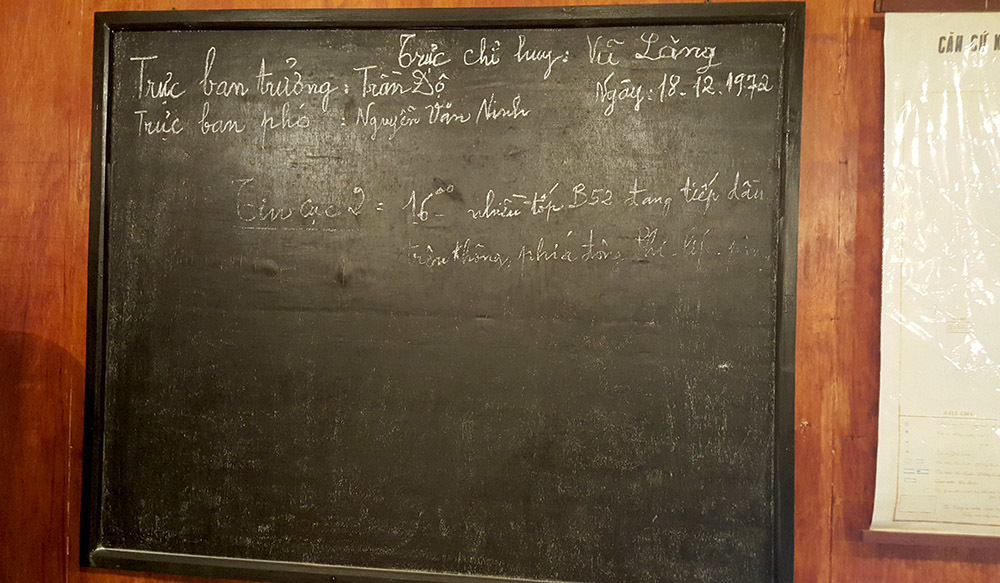 Trực chỉ huy: Vũ Lăng
Trực ban trưởng: Trần Độ
Ngày: 18-12-1972
Trực ban phó : Nguyễn Văn Ninh
Tin cục 2 = 16⁰⁰ nhiều tốp B52 đang tiếp dầu
trên không, phía đông Phi-líp-pin
CĂN CỨ